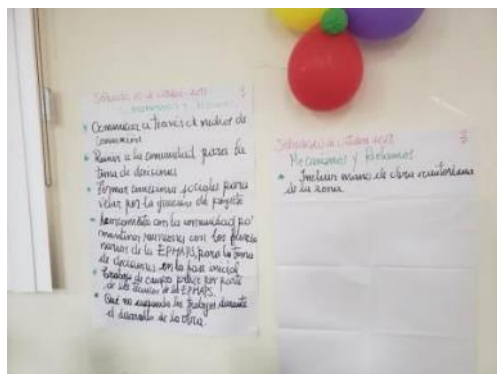 Sábado 20 de octubre 2018 3
Mecanismos y Reclamos
Comunicar a través de medios de
comunicación
Reunir a la comunidad para la
toma de decisiones
Formar comisiones sociales para
velar por la ejecución del proyecto
con la comunidad para
mantener reuniones con los funcio
narios de la EPMAPS, para la toma
de decisiones en la fase inicial
Trabajo de campo previo por parte
de los técnicos de la EPMAPS.
Que no suspendan los trabajos durante
el desarrollo de la obra.
Sábado 20 de octubre 2018 3
Mecanismos y Reclamos
Incluir mano de obra ecuatoriana
de la zona